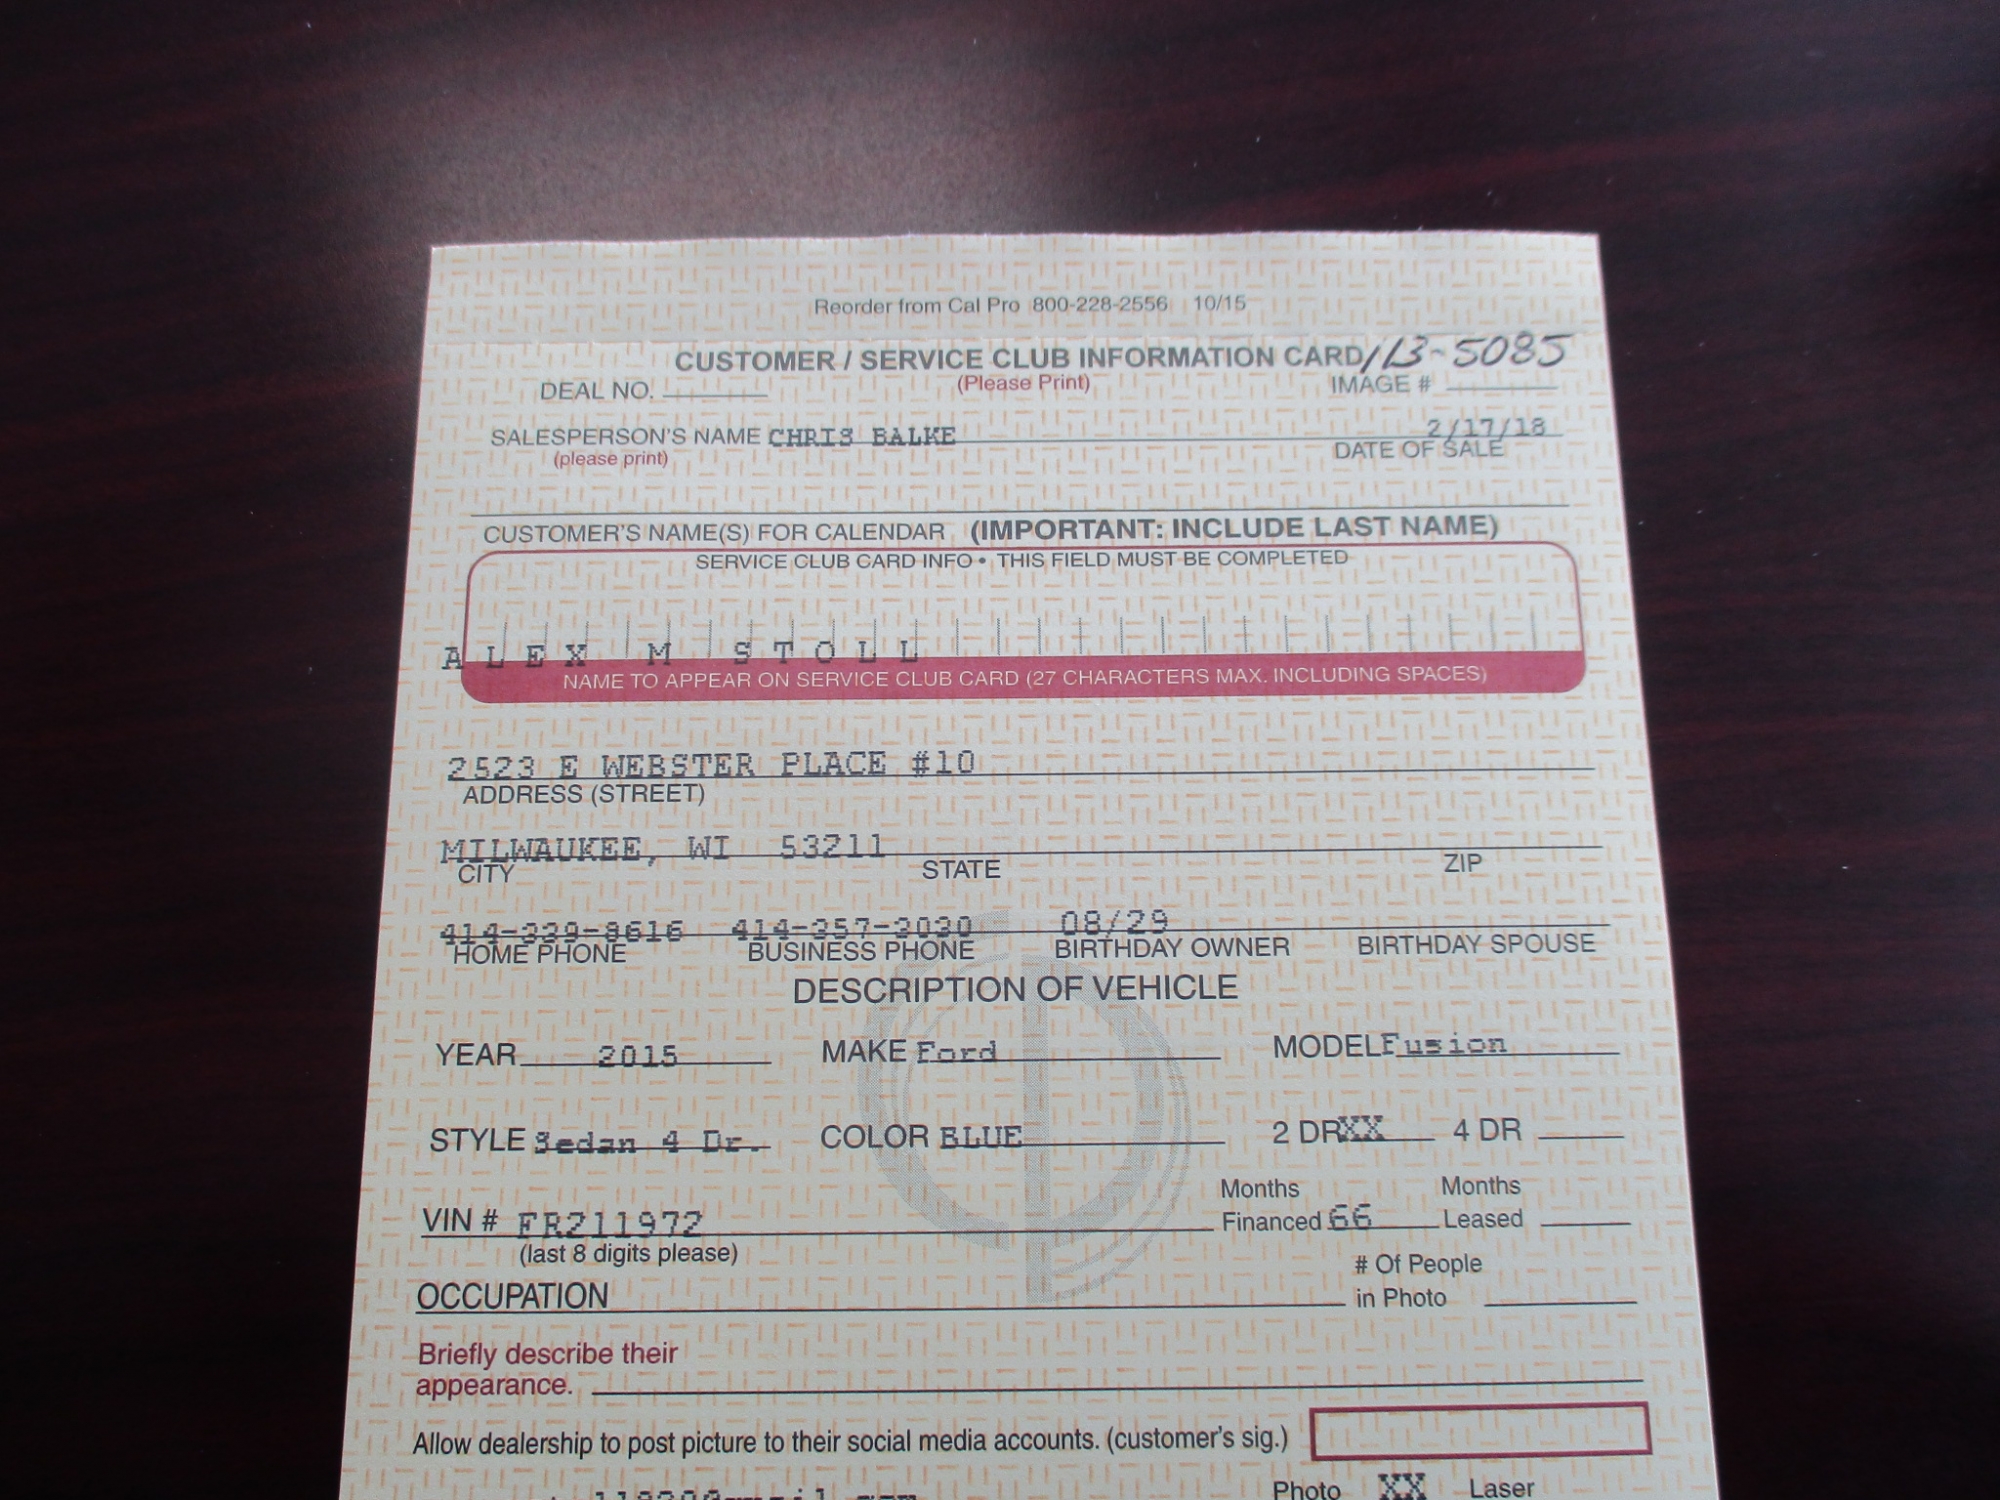 Reorder from Cal Pro 800-228-2556 10/15
CUSTOMER / SERVICE CLUB INFORMATION CARD 113-5085
DEAL NO. (Please Print) IMAGE #
SALESPERSON'S NAME CHRIS BALKE 2/17/18
(please print) DATE OF SALE
CUSTOMER'S NAME(S) FOR CALENDAR (IMPORTANT: INCLUDE LAST NAME)
SERVICE CLUB CARD INFO • THIS FIELD MUST BE COMPLETED
ALEX M STOLL
NAME TO APPEAR ON SERVICE CLUB CARD (27 CHARACTERS MAX. INCLUDING SPACES)
2523 E WEBSTER PLACE #10
ADDRESS (STREET)
MILWAUKEE, WI 53211
CITY STATE ZIP
414-339-8616 414-357-3030 08/29
HOME PHONE BUSINESS PHONE BIRTHDAY OWNER BIRTHDAY SPOUSE
DESCRIPTION OF VEHICLE
YEAR 2015 MAKE Ford MODEL Fusion
STYLE Sedan 4 Dr. COLOR BLUE 2 DR XX 4 DR
Months Months
VIN # FR211972 Financed 66 Leased
(last 8 digits please)
# Of People
OCCUPATION in Photo
Briefly describe their
appearance.
Allow dealership to post picture to their social media accounts. (customer's sig.)
Photo XX Laser